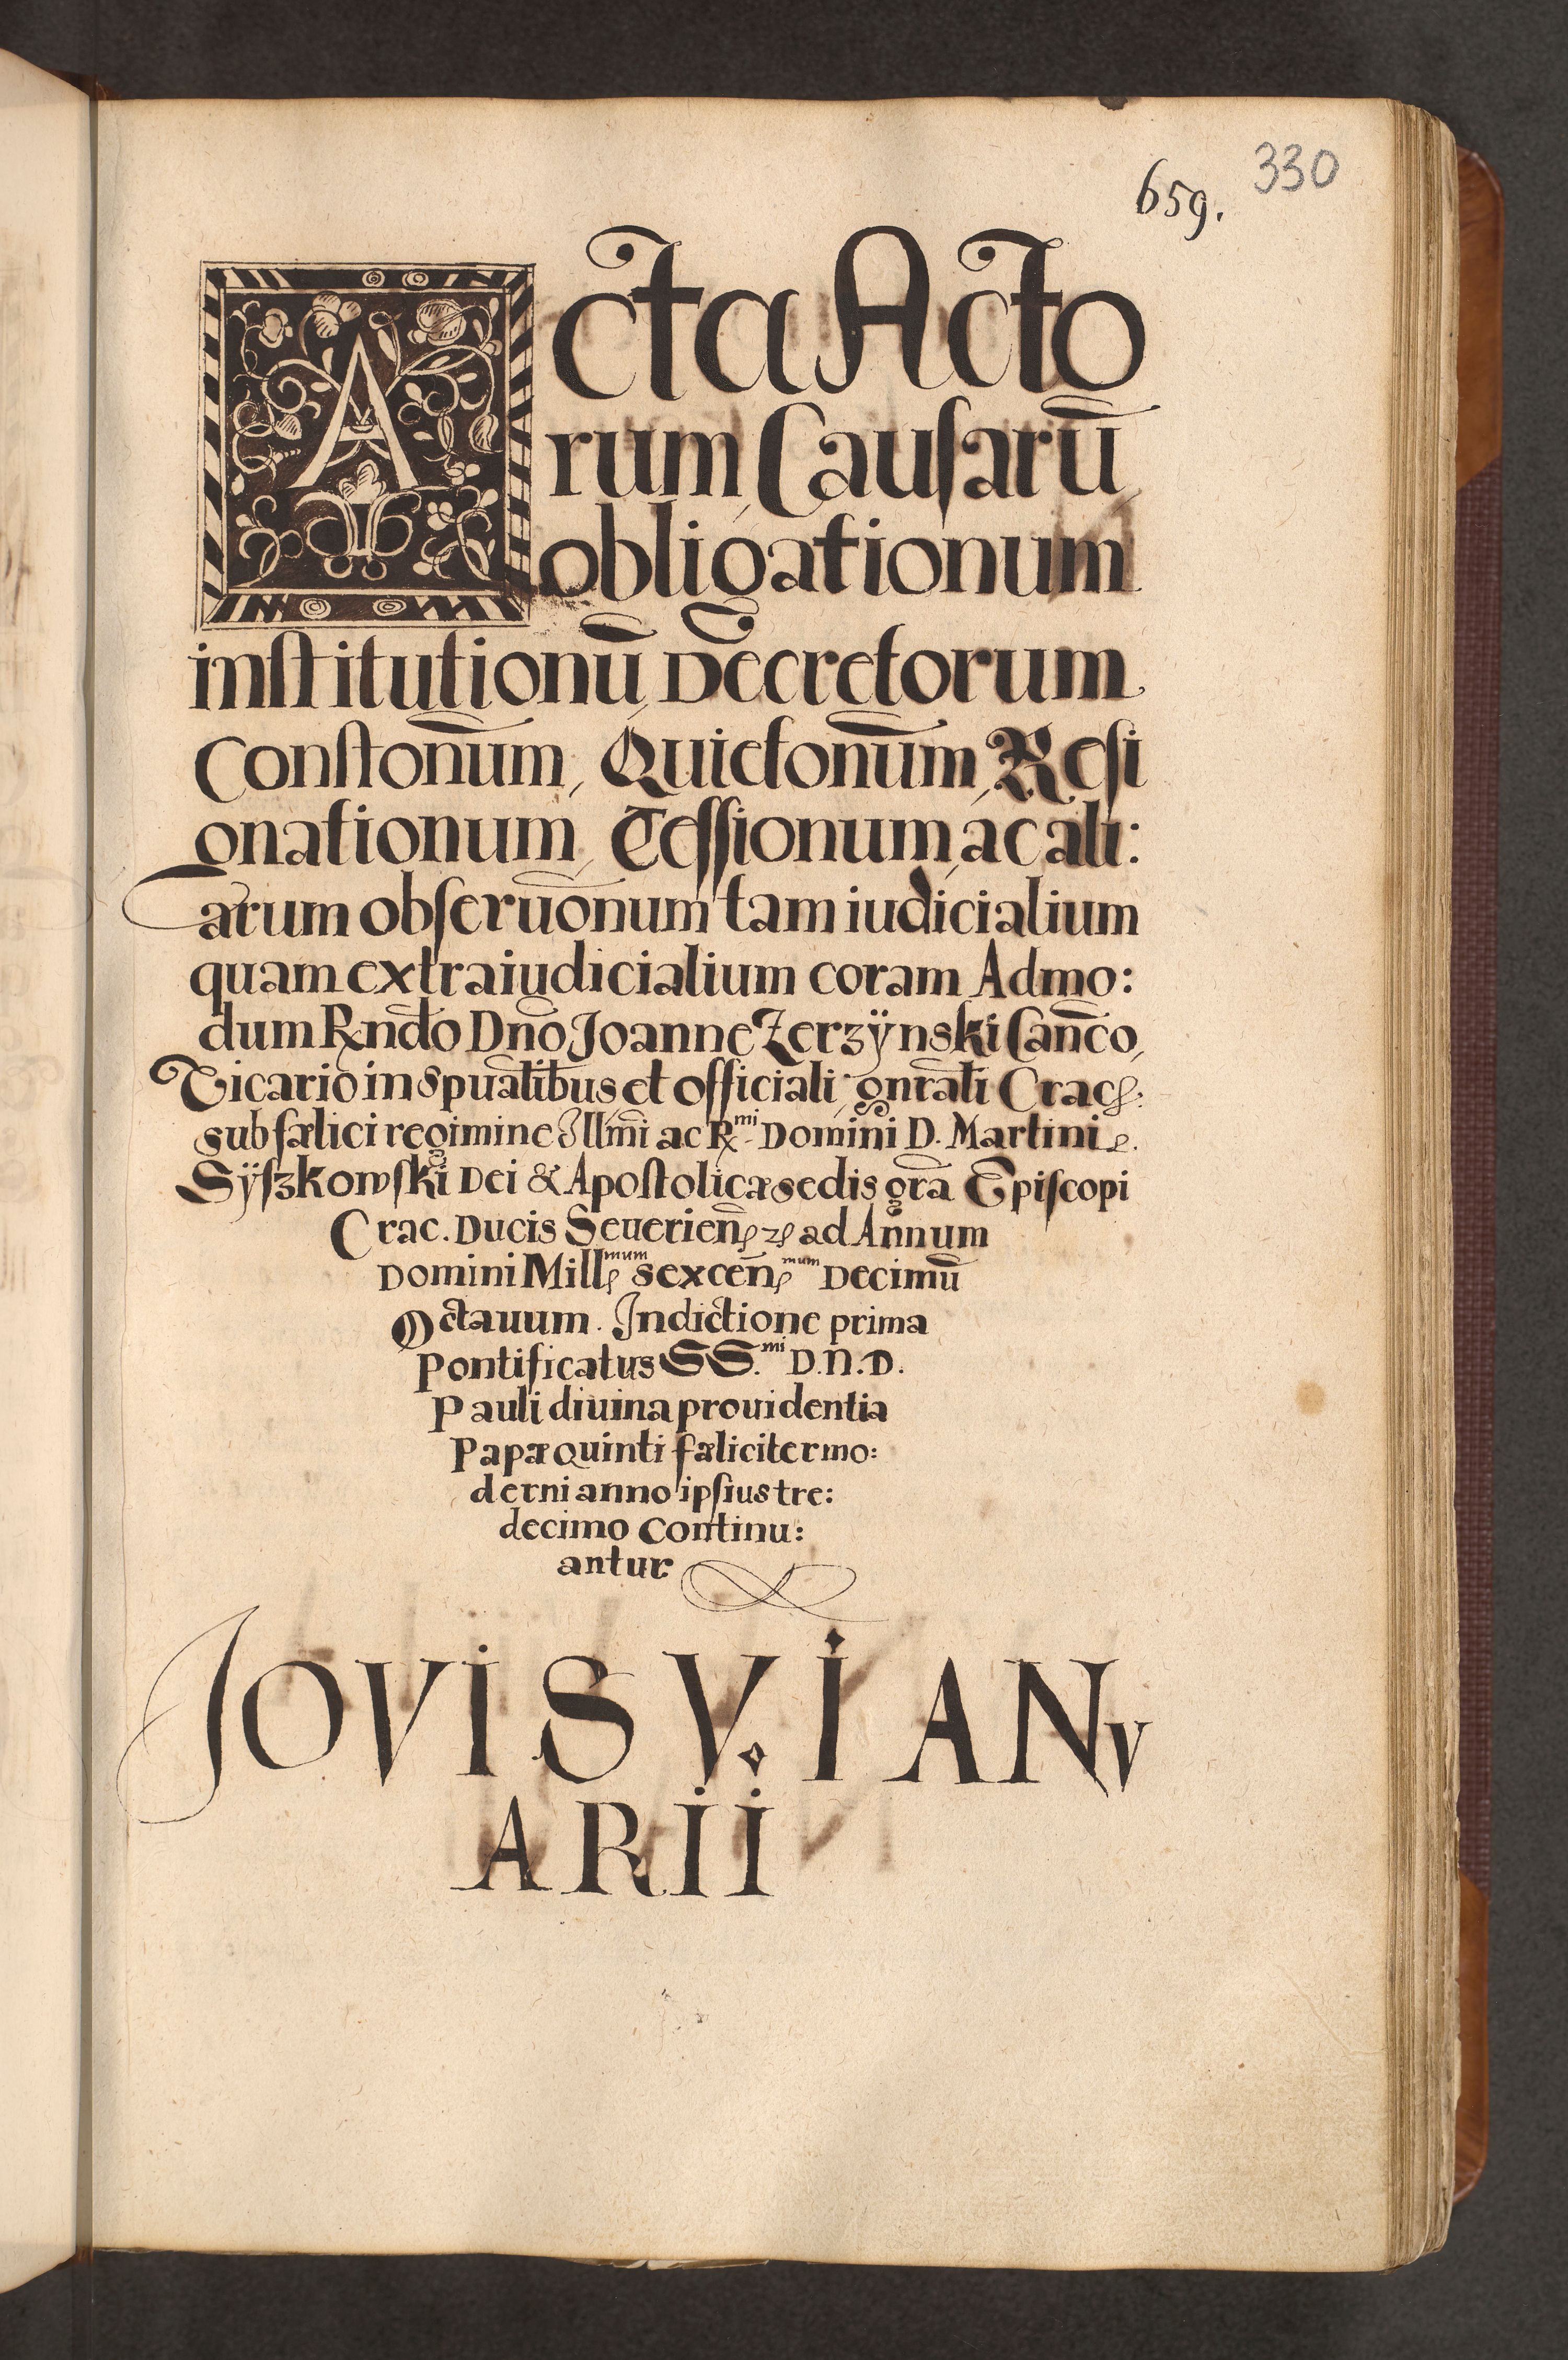 659. 330
Acta Acto
rum Causarū
obligationum
institutionū, Decretorum
Constonūm, Quietonūm, Resi
gnationum, Cessionum, ac ali:
arum obseruōnum tam iudicialium
quam extraiudicialium coram Admo:
dum Rndo Dno Joanne Zerzÿnski Canco,
Vicario in spualibus et officiali gnrali Crac:
sub fælici regimine Illmi ac R.mi Domini D. Martini
Sÿszkowski Dei & Apostolicæ sedis gra Episcopi
Crac. Ducis Seuerien ad Annum
Domini Mill mum sexcen mum Decimū
Octauum. Indictione prima
Pontificatus SS.mi D.N.D.
Pauli diuina prouidentia
Papæ Quinti fæliciter mo:
derni anno ipsius tre:
decimo Continu:
antur
JOVIS V. IANV
ARII